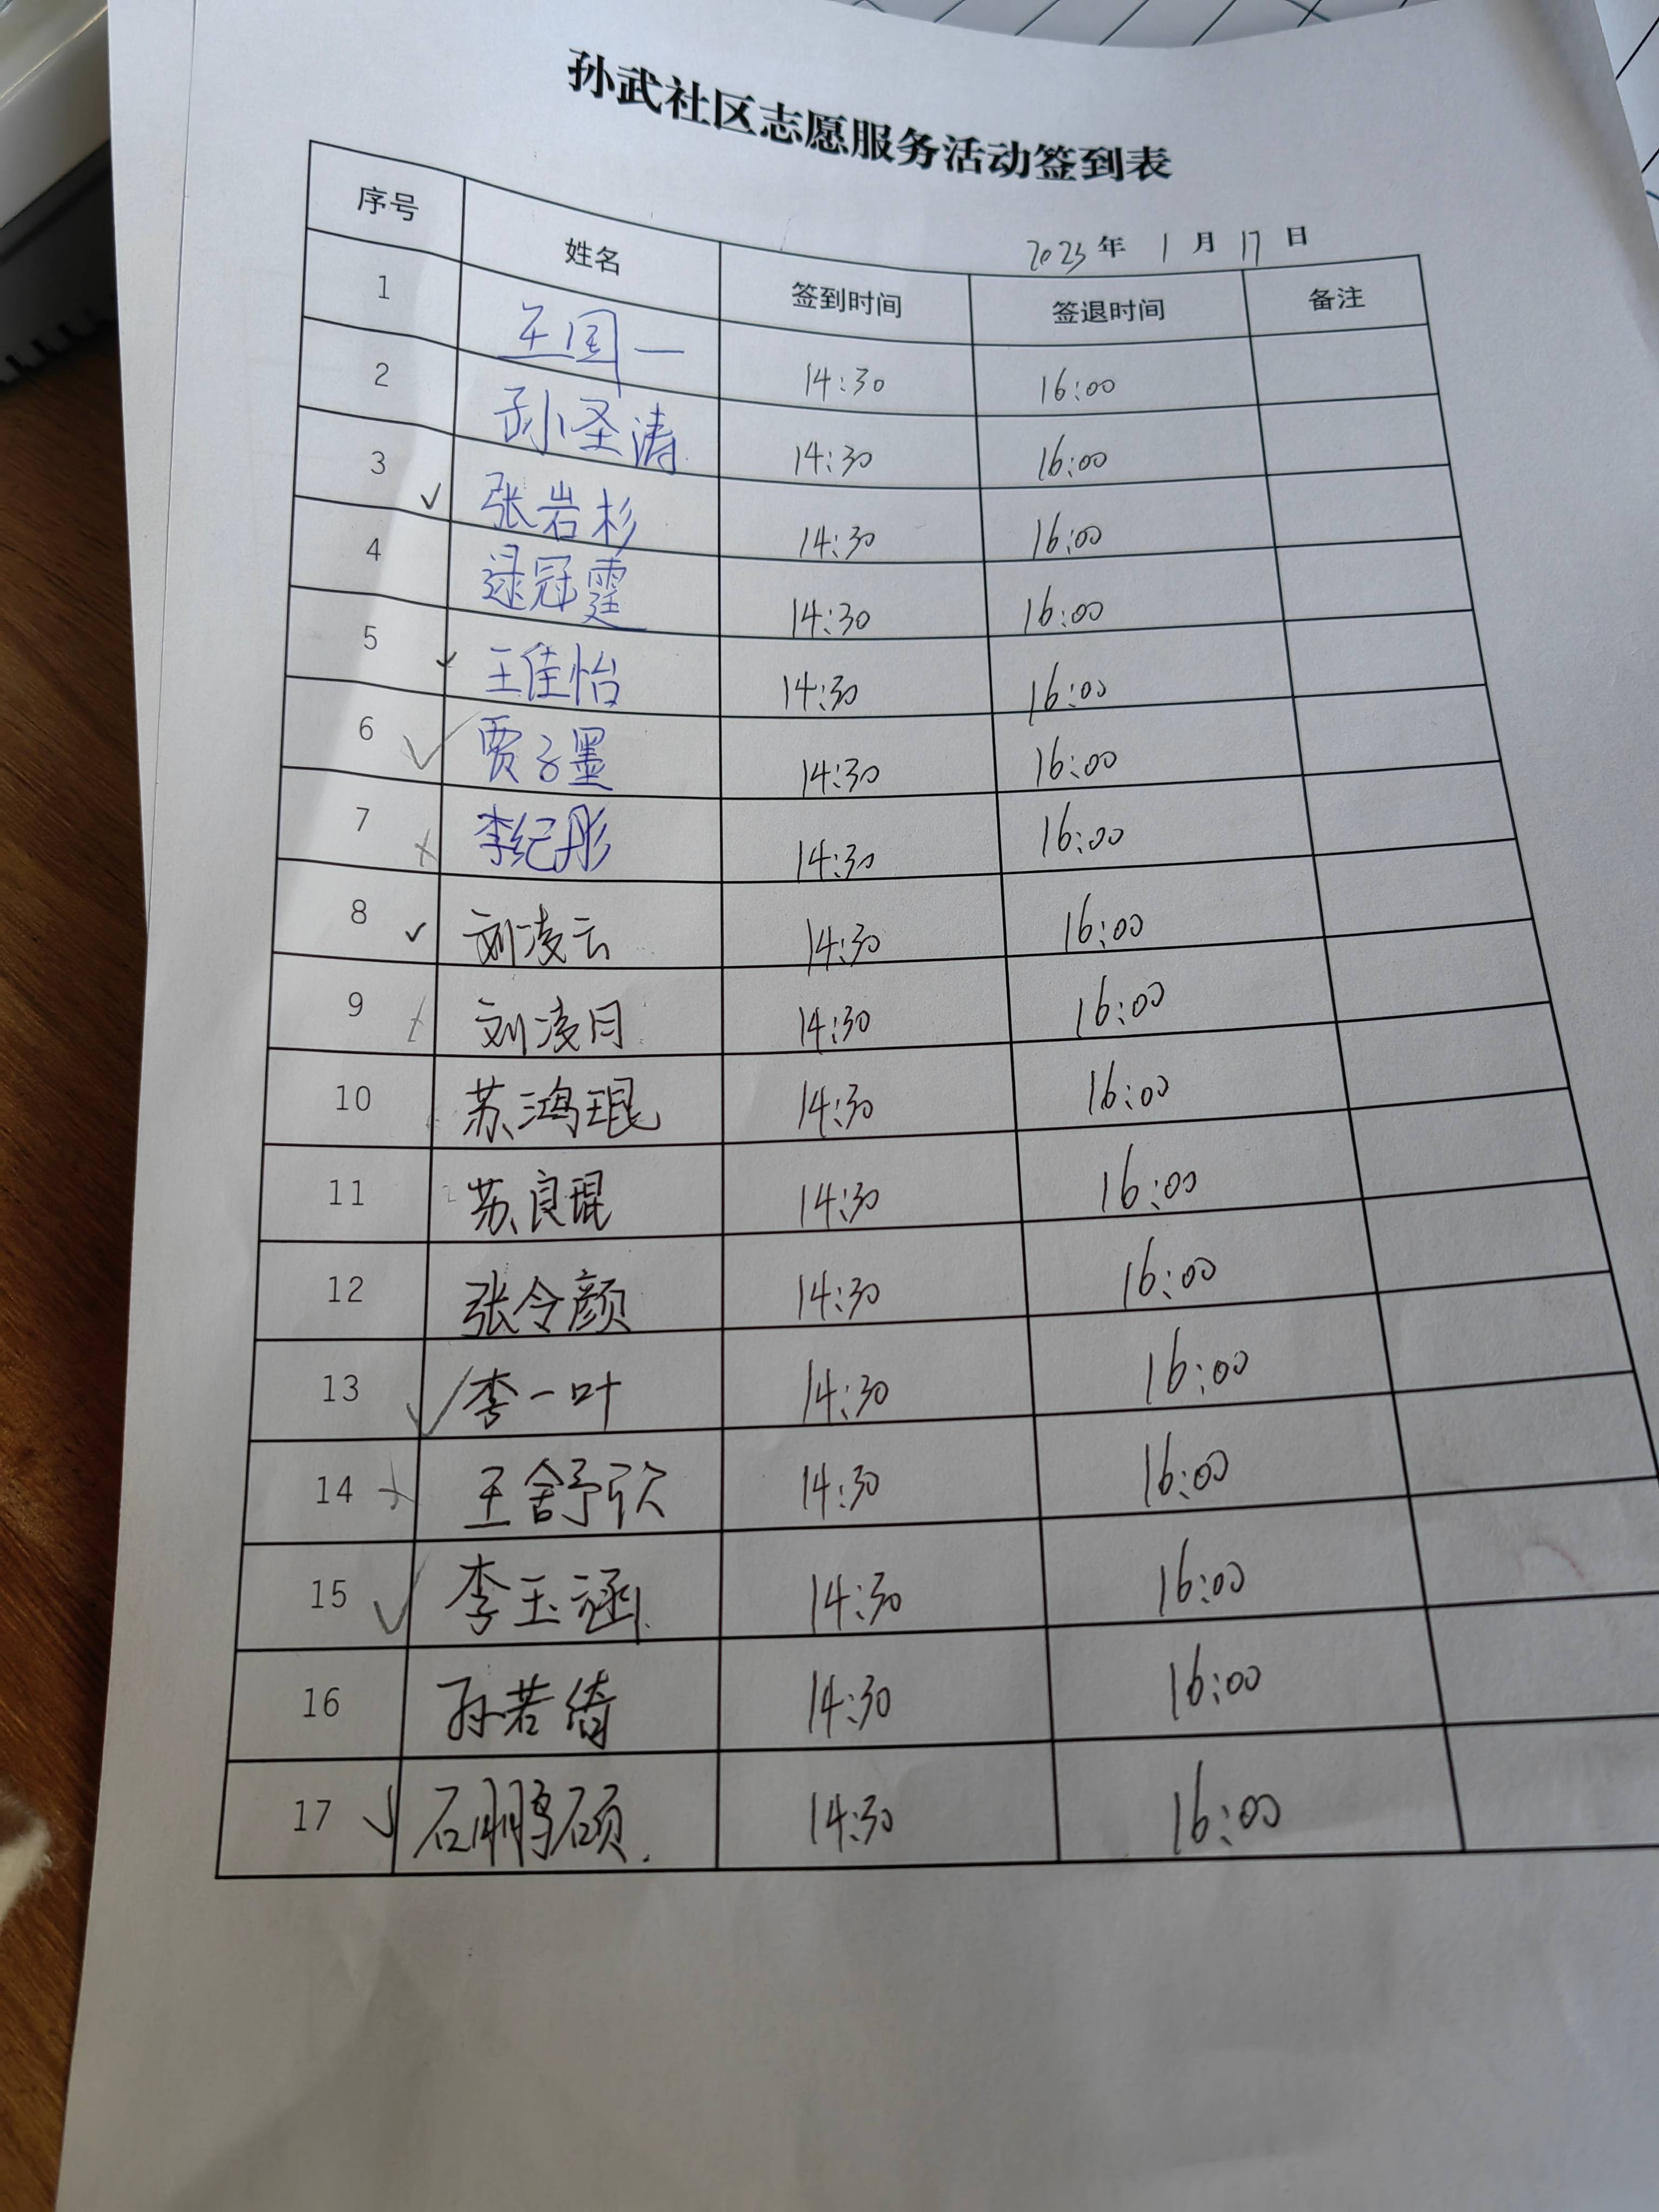 孙武社区志愿服务活动签到表
2023年 1 月 17 日
序号 姓名 签到时间 签退时间 备注
1 王国一 14:30 16:00
2 孙圣涛 14:30 16:00
3 ✓ 张岩杉 14:30 16:00
4 逯冠霆 14:30 16:00
5 ✓ 王佳怡 14:30 16:00
6 ✓ 贾子墨 14:30 16:00
7 李纪彤 14:30 16:00
8 ✓ 刘凌云 14:30 16:00
9 刘凌月 14:30 16:00
10 苏鸿琨 14:30 16:00
11 苏良琨 14:30 16:00
12 张令颜 14:30 16:00
13 ✓ 李一叶 14:30 16:00
14 王舒欣 14:30 16:00
15 ✓ 李玉涵 14:30 16:00
16 孙若绮 14:30 16:00
17 ✓ 石鹏硕 14:30 16:00